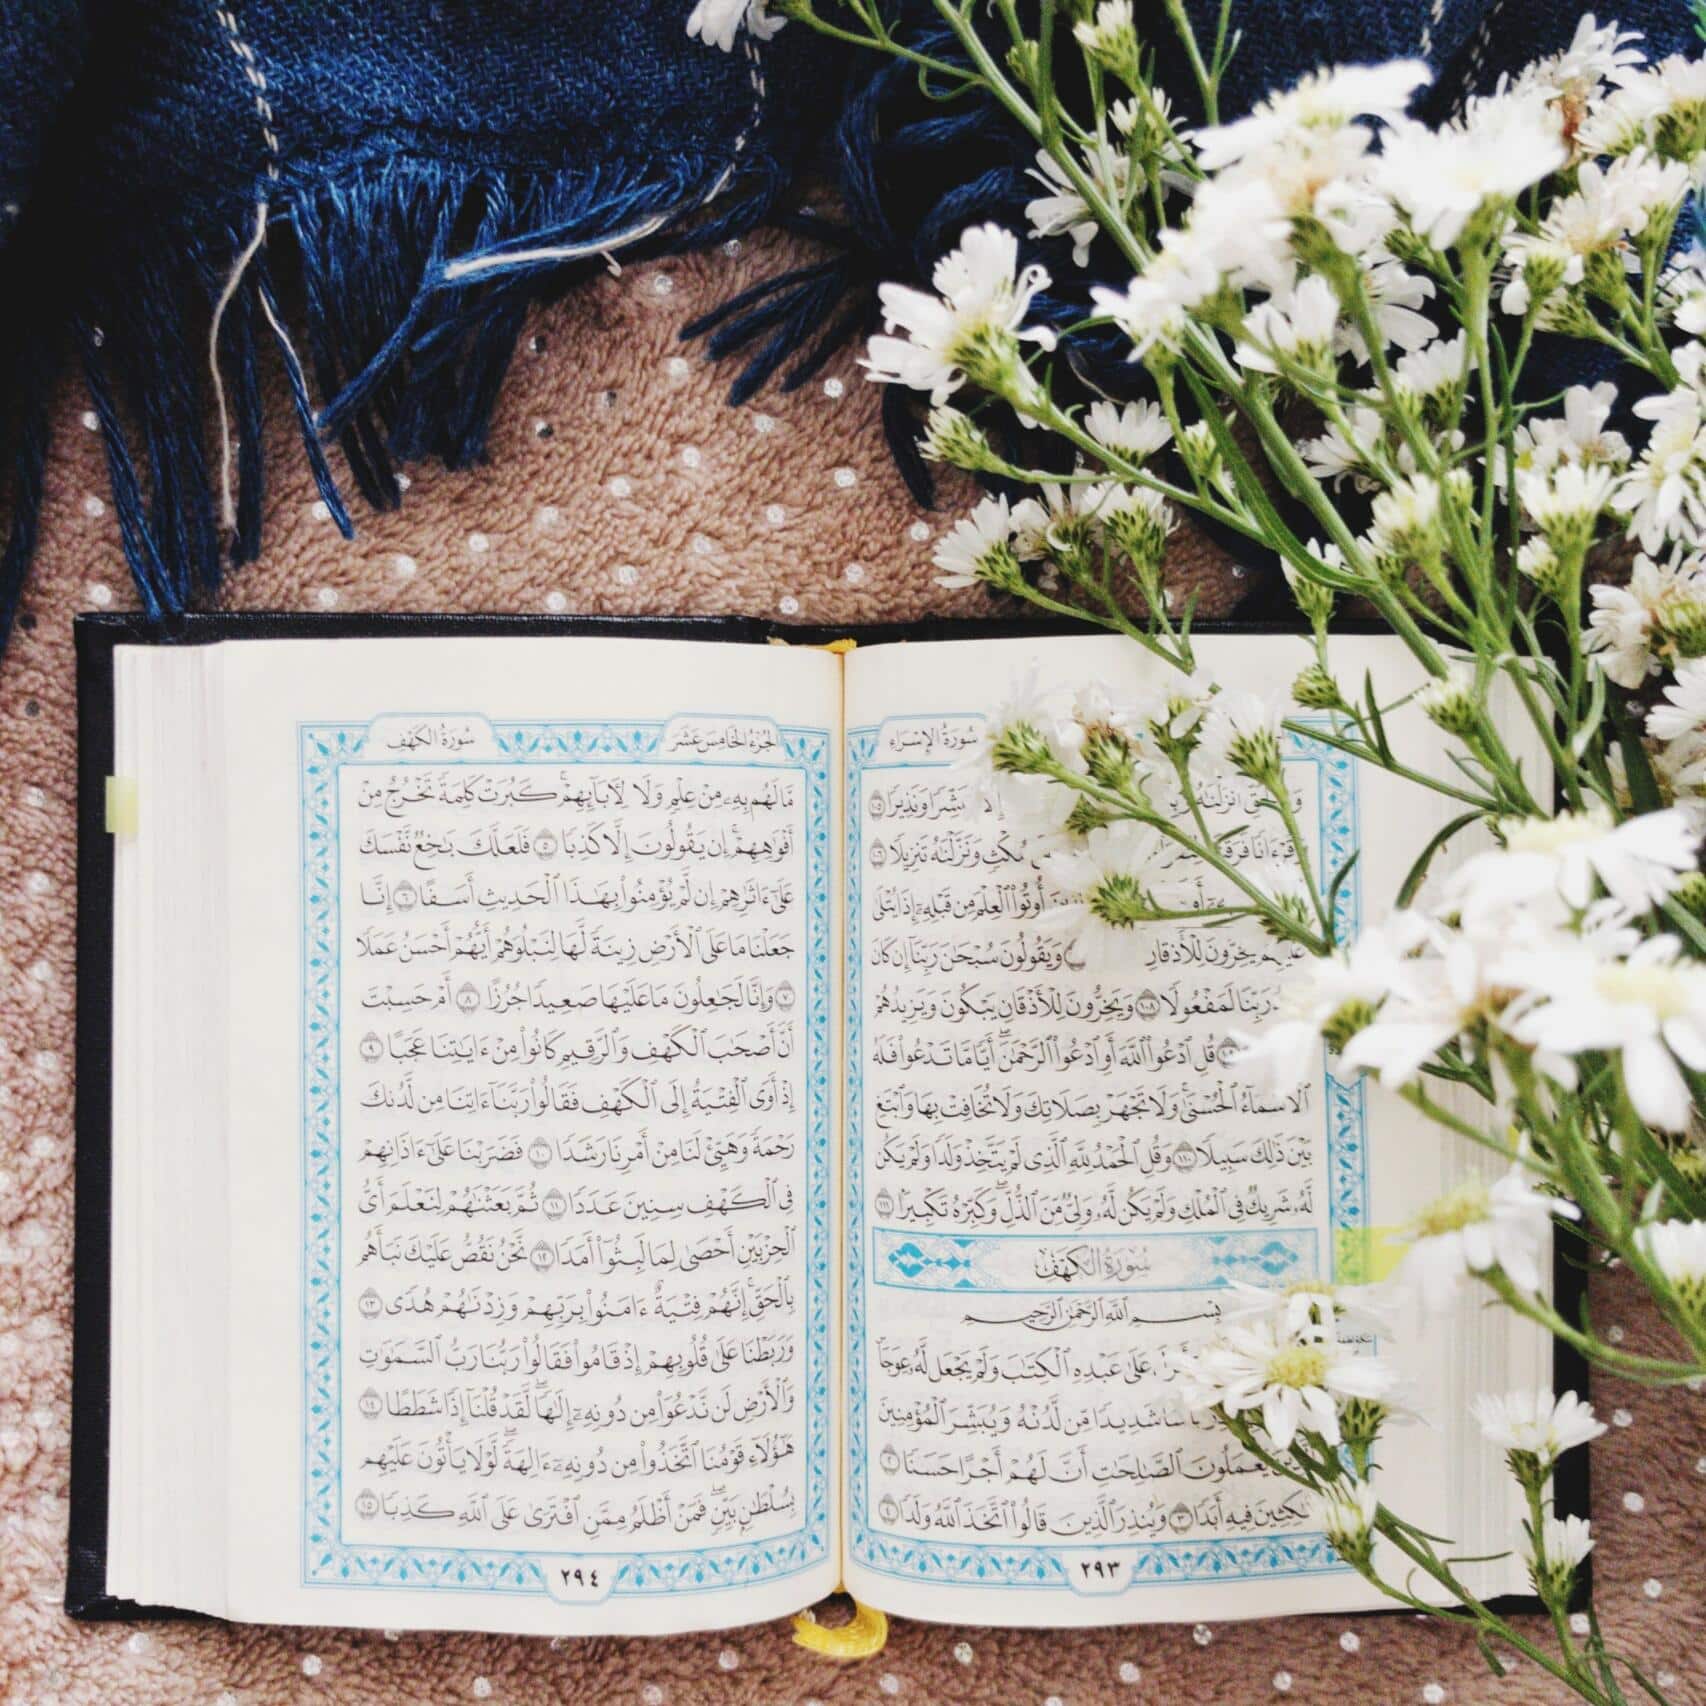 سُورَةُ الإِسْرَاءِ
أَنزَلْنَٰهُ إِلَّا مُبَشِّرًا وَنَذِيرًا ١٠٥
وَقُرْءَانًا فَرَقْنَٰهُ مُكْثٍ وَنَزَّلْنَٰهُ تَنزِيلًا ١٠٦
أُوتُوا۟ ٱلْعِلْمَ مِن قَبْلِهِۦٓ إِذَا يُتْلَىٰ
عَلَيْهِمْ يَخِرُّونَ لِلْأَذْقَانِ وَيَقُولُونَ سُبْحَٰنَ رَبِّنَآ إِن كَانَ
رَبِّنَا لَمَفْعُولًا ١٠٨ وَيَخِرُّونَ لِلْأَذْقَانِ يَبْكُونَ وَيَزِيدُهُمْ
قُلِ ٱدْعُوا۟ ٱللَّهَ أَوِ ٱدْعُوا۟ ٱلرَّحْمَٰنَ ۖ أَيًّا مَّا تَدْعُوا۟ فَلَهُ
ٱلْأَسْمَآءُ ٱلْحُسْنَىٰ ۚ وَلَا تَجْهَرْ بِصَلَاتِكَ وَلَا تُخَافِتْ بِهَا وَٱبْتَغِ
بَيْنَ ذَٰلِكَ سَبِيلًا ١١٠ وَقُلِ ٱلْحَمْدُ لِلَّهِ ٱلَّذِى لَمْ يَتَّخِذْ وَلَدًا وَلَمْ يَكُن
لَّهُۥ شَرِيكٌ فِى ٱلْمُلْكِ وَلَمْ يَكُن لَّهُۥ وَلِىٌّ مِّنَ ٱلذُّلِّ ۖ وَكَبِّرْهُ تَكْبِيرًۢا ١١١
سُورَةُ الكَهْفِ
بِسْمِ ٱللَّهِ ٱلرَّحْمَٰنِ ٱلرَّحِيمِ
عَلَىٰ عَبْدِهِ ٱلْكِتَٰبَ وَلَمْ يَجْعَل لَّهُۥ عِوَجَا
بَأْسًا شَدِيدًا مِّن لَّدُنْهُ وَيُبَشِّرَ ٱلْمُؤْمِنِينَ
يَعْمَلُونَ ٱلصَّٰلِحَٰتِ أَنَّ لَهُمْ أَجْرًا حَسَنًا ٢
مَّٰكِثِينَ فِيهِ أَبَدًا ٣ وَيُنذِرَ ٱلَّذِينَ قَالُوا۟ ٱتَّخَذَ ٱللَّهُ وَلَدًا ٤
٢٩٣
الجُزْءُ الخَامِسَ عَشَرَ سُورَةُ الكَهْفِ
مَّا لَهُم بِهِۦ مِنْ عِلْمٍ وَلَا لِءَابَآئِهِمْ ۚ كَبُرَتْ كَلِمَةً تَخْرُجُ مِنْ
أَفْوَٰهِهِمْ ۚ إِن يَقُولُونَ إِلَّا كَذِبًا ٥ فَلَعَلَّكَ بَٰخِعٌ نَّفْسَكَ
عَلَىٰٓ ءَاثَٰرِهِمْ إِن لَّمْ يُؤْمِنُوا۟ بِهَٰذَا ٱلْحَدِيثِ أَسَفًا ٦ إِنَّا
جَعَلْنَا مَا عَلَى ٱلْأَرْضِ زِينَةً لَّهَا لِنَبْلُوَهُمْ أَيُّهُمْ أَحْسَنُ عَمَلًا
٧ وَإِنَّا لَجَٰعِلُونَ مَا عَلَيْهَا صَعِيدًا جُرُزًا ٨ أَمْ حَسِبْتَ
أَنَّ أَصْحَٰبَ ٱلْكَهْفِ وَٱلرَّقِيمِ كَانُوا۟ مِنْ ءَايَٰتِنَا عَجَبًا ٩
إِذْ أَوَى ٱلْفِتْيَةُ إِلَى ٱلْكَهْفِ فَقَالُوا۟ رَبَّنَآ ءَاتِنَا مِن لَّدُنكَ
رَحْمَةً وَهَيِّئْ لَنَا مِنْ أَمْرِنَا رَشَدًا ١٠ فَضَرَبْنَا عَلَىٰٓ ءَاذَانِهِمْ
فِى ٱلْكَهْفِ سِنِينَ عَدَدًا ١١ ثُمَّ بَعَثْنَٰهُمْ لِنَعْلَمَ أَىُّ
ٱلْحِزْبَيْنِ أَحْصَىٰ لِمَا لَبِثُوٓا۟ أَمَدًا ١٢ نَّحْنُ نَقُصُّ عَلَيْكَ نَبَأَهُم
بِٱلْحَقِّ ۚ إِنَّهُمْ فِتْيَةٌ ءَامَنُوا۟ بِرَبِّهِمْ وَزِدْنَٰهُمْ هُدًى ١٣
وَرَبَطْنَا عَلَىٰ قُلُوبِهِمْ إِذْ قَامُوا۟ فَقَالُوا۟ رَبُّنَا رَبُّ ٱلسَّمَٰوَٰتِ
وَٱلْأَرْضِ لَن نَّدْعُوَا۟ مِن دُونِهِۦٓ إِلَٰهًا ۖ لَّقَدْ قُلْنَآ إِذًا شَطَطًا ١٤
هَٰٓؤُلَآءِ قَوْمُنَا ٱتَّخَذُوا۟ مِن دُونِهِۦٓ ءَالِهَةً ۖ لَّوْلَا يَأْتُونَ عَلَيْهِم
بِسُلْطَٰنٍۭ بَيِّنٍ ۖ فَمَنْ أَظْلَمُ مِمَّنِ ٱفْتَرَىٰ عَلَى ٱللَّهِ كَذِبًا ١٥
٢٩٤